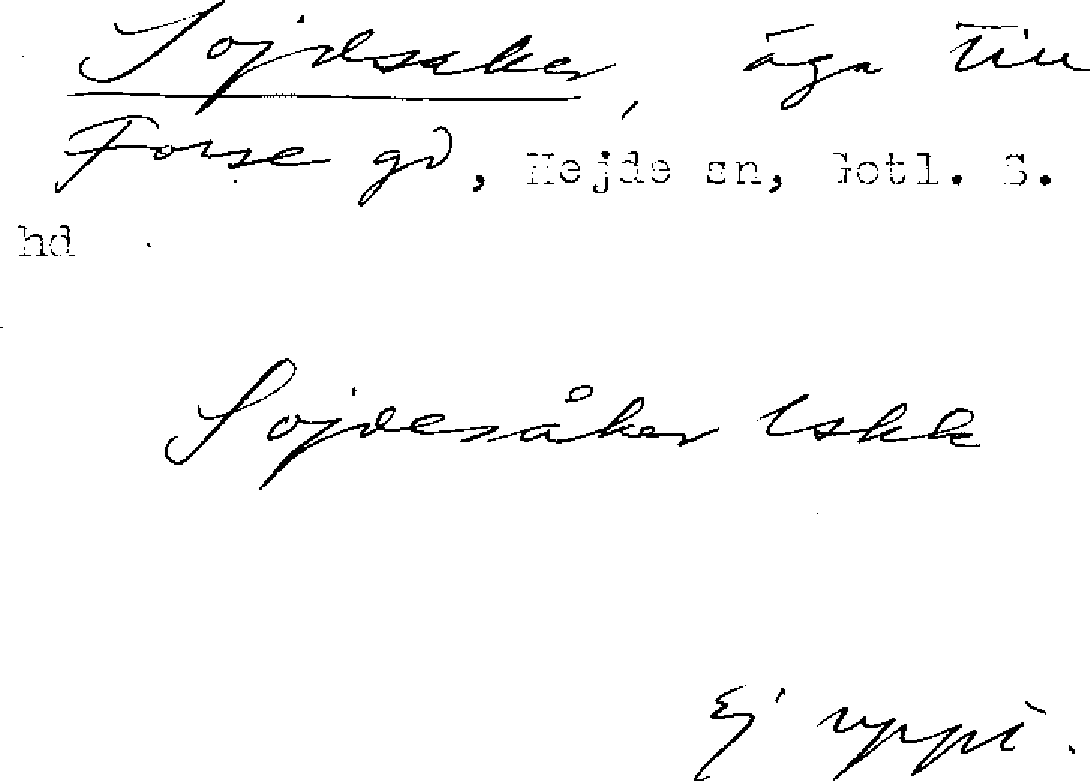 Sojdesaker, äga till
Forse gd, Hejde sn, Gotl. S.
hd
Sojdesåker lskk
Ej uppt.